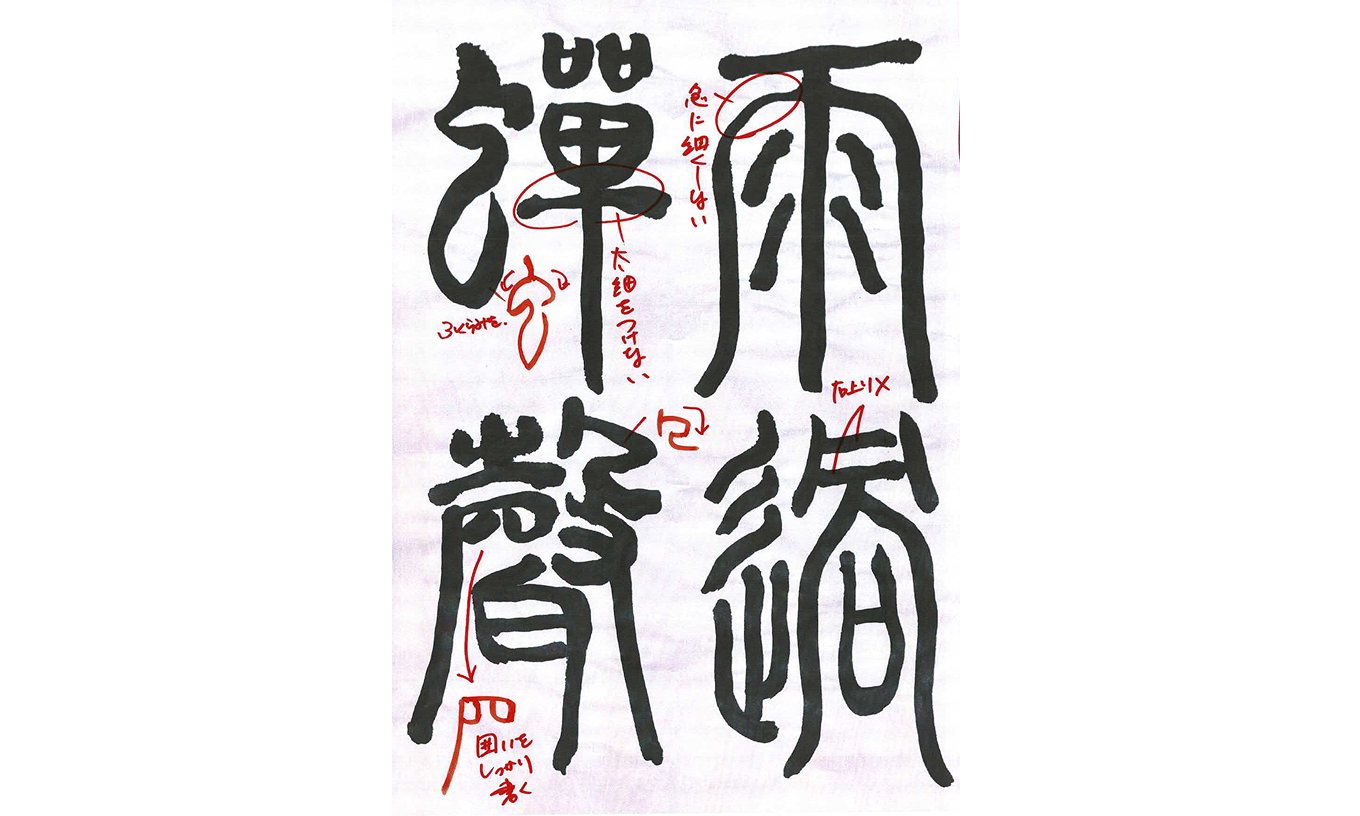 雨過
蟬聲
急に細くしない
太細をつけない
ふくらみを.
右上り×
囲いを
しっかり
書く